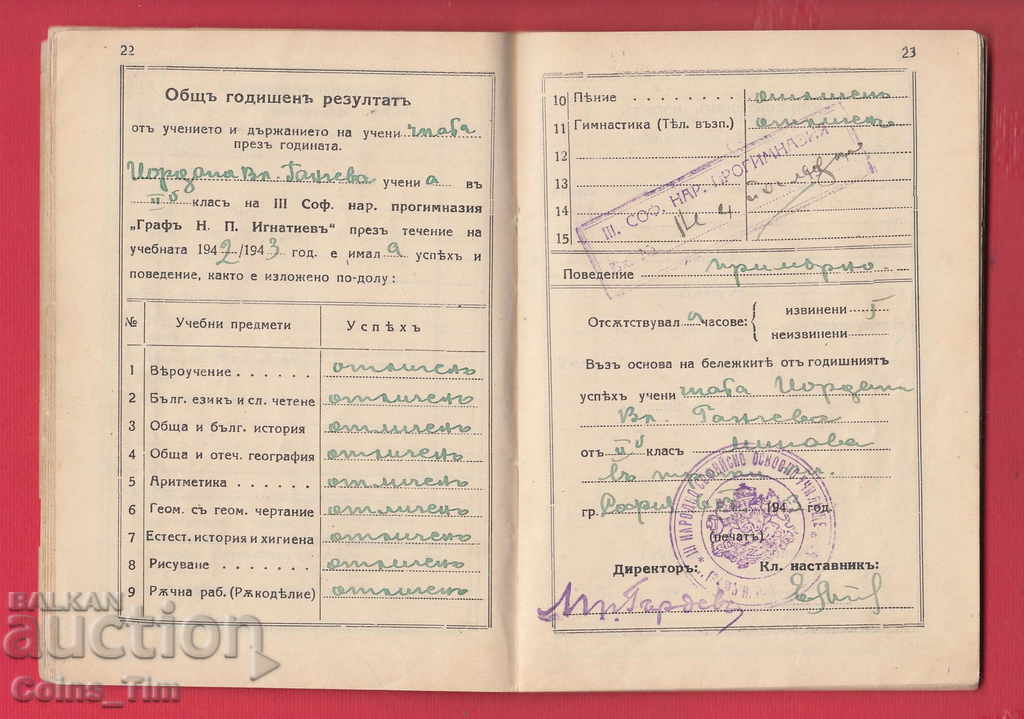 22
Общъ годишенъ резултатъ
отъ учението и държанието на учени чката
презъ годината.
Йордана Вл. Ганчева учени а въ
II б класъ на III Соф. нар. прогимназия
„Графъ Н. П. Игнатиевъ" презъ течение на
учебната 1942/1943 год. е имал а успѣхъ и
поведение, както е изложено по-долу:
№ Учебни предмети Успѣхъ
1 Вѣроучение . . . . . . отличенъ
2 Бълг. езикъ и сл. четене отличенъ
3 Обща и бълг. история отличенъ
4 Обща и отеч. география отличенъ
5 Аритметика . . . . . . отличенъ
6 Геом. съ геом. чертание отличенъ
7 Естест. история и хигиена отличенъ
8 Рисуване . . . . . . отличенъ
9 Рѫчна раб. (Рѫкоделие) отличенъ
23
10 Пѣние . . . . . . . . отличенъ
11 Гимнастика (Тѣл. възп.) отличенъ
12
13
14
15
III. СОФ. НАР. ПРОГИМНАЗИЯ
Поведение примѣрно
Отсѫтствувал а часове: извинени 5
неизвинени
Възъ основа на бележкитѣ отъ годишниятъ
успѣхъ учени Йордана
Вл. Ганчева
отъ II б класъ минава
въ
гр. София 1943 год.
(печатъ)
Директоръ: Кл. наставникъ:
BALKAN
auction
Coins_Tim